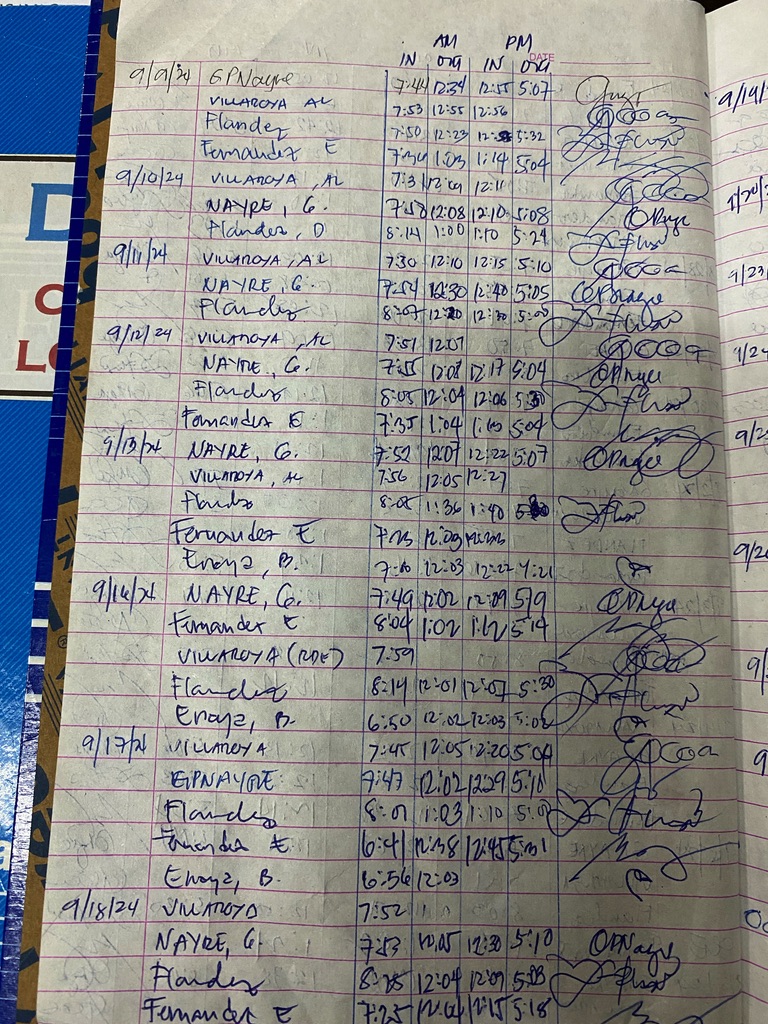 AM PM
IN OUT IN OUT
DATE
9/9/24 GPNayre 7:44 12:34 12:55 5:07
VILLAROYA AL 7:53 12:55 12:56
Flandez 7:50 12:23 5:32
Fernandez E 1:03 1:14 5:04
9/10/24 VILLAROYA, AL 7:31 12:11
NAYRE, G. 7:58 12:08 12:10 5:08
Flandez, D 8:14 1:00 1:10 5:24
9/11/24 VILLAROYA, AL 7:30 12:10 12:15 5:10
NAYRE, G. 7:54 12:30 12:40 5:05
Flandez 8:07
9/12/24 VILLAROYA, AL 7:51 12:07
NAYRE, G. 7:55 12:08 12:17 5:04
Flandez 8:05 12:04 12:06
Fernandez E 7:35 1:04 5:04
9/13/24 NAYRE, G. 7:52 12:07 12:22 5:07
VILLAROYA, AL 7:56 12:05 12:27
Flandez 8:05 1:36 1:40
Fernandez E 7:23 12:09
B. 12:03 12:22 4:21
9/16/24 NAYRE, G. 7:49 12:02 12:09 5:19
Fernandez E 8:04 1:02 1:12 5:14
VILLAROYA (RDE) 7:59
Flandez 8:14 12:01 12:07 5:30
B. 6:50 12:02 12:03 5:02
9/17/24 VILLAROYA 7:45 12:05 12:20 5:04
GPNAYRE 7:47 12:02 12:29 5:10
Flandez 8:01 1:03 1:10
Fernandez E 6:41 12:38 12:45 5:31
B. 6:56 12:03
9/18/24 VILLAROYA 7:52
NAYRE, G. 7:53 12:05 12:30 5:10
Flandez 12:04 12:09
Fernandez E 7:25 12:15 5:18